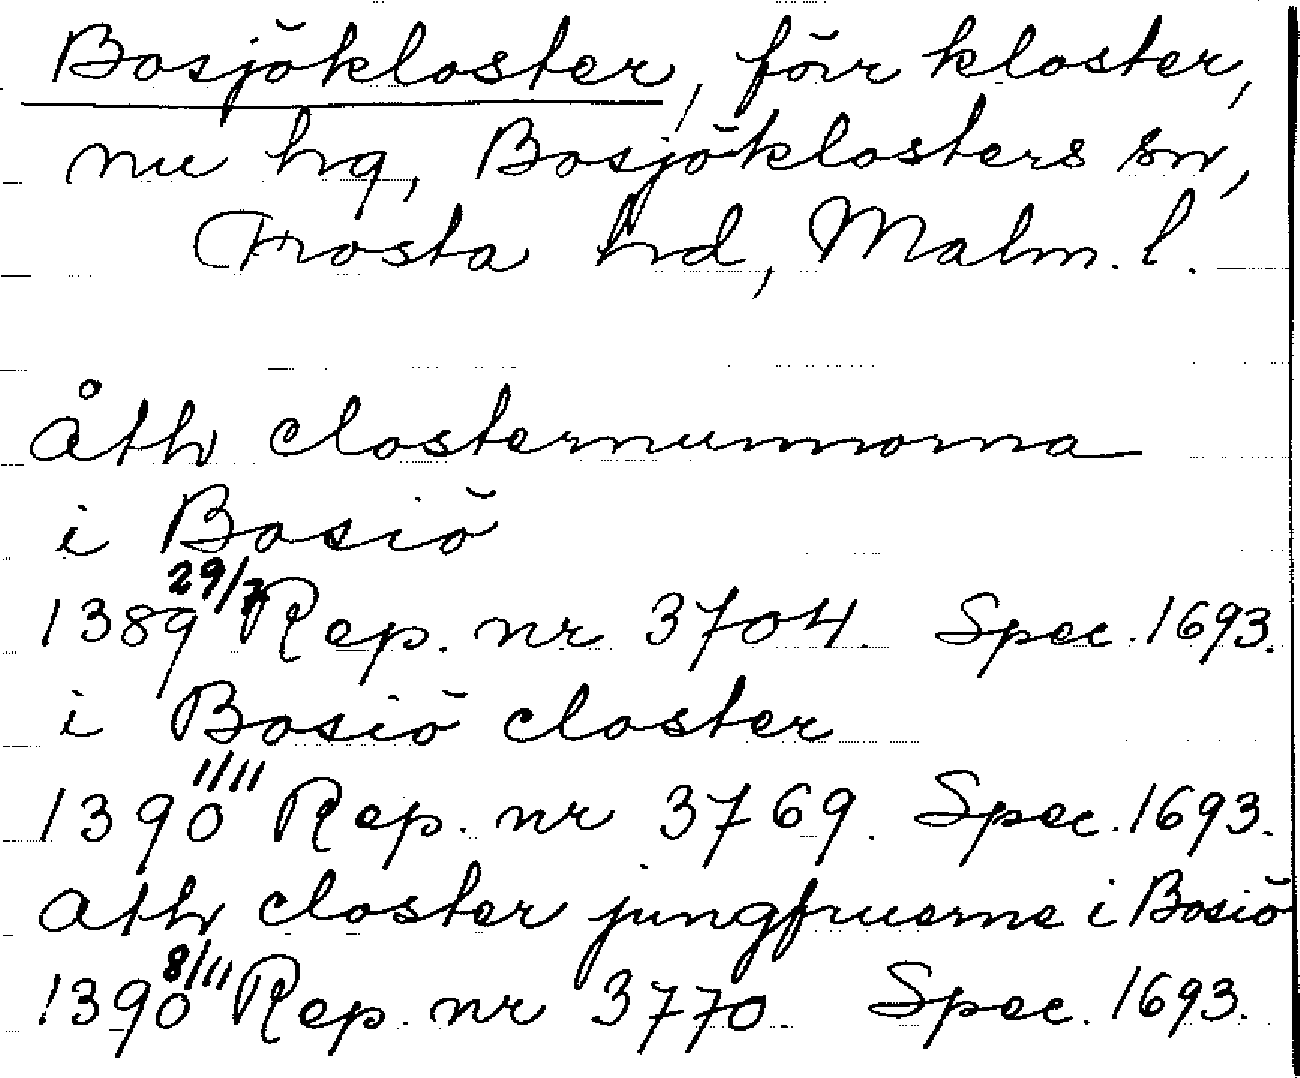 Bosjökloster, förr kloster,
nu hg, Bosjöklosters sn,
Frosta hd, Malm. l.
Åth closternunnorna
i Bosiö
1389 29/7 Rep. nr 3704. Spec. 1693.
i Bosiö closter
1390 1/11 Rep. nr 3769. Spec. 1693.
ath closter jungfruerne i Bosiö
1390 8/11 Rep. nr 3770. Spec. 1693.